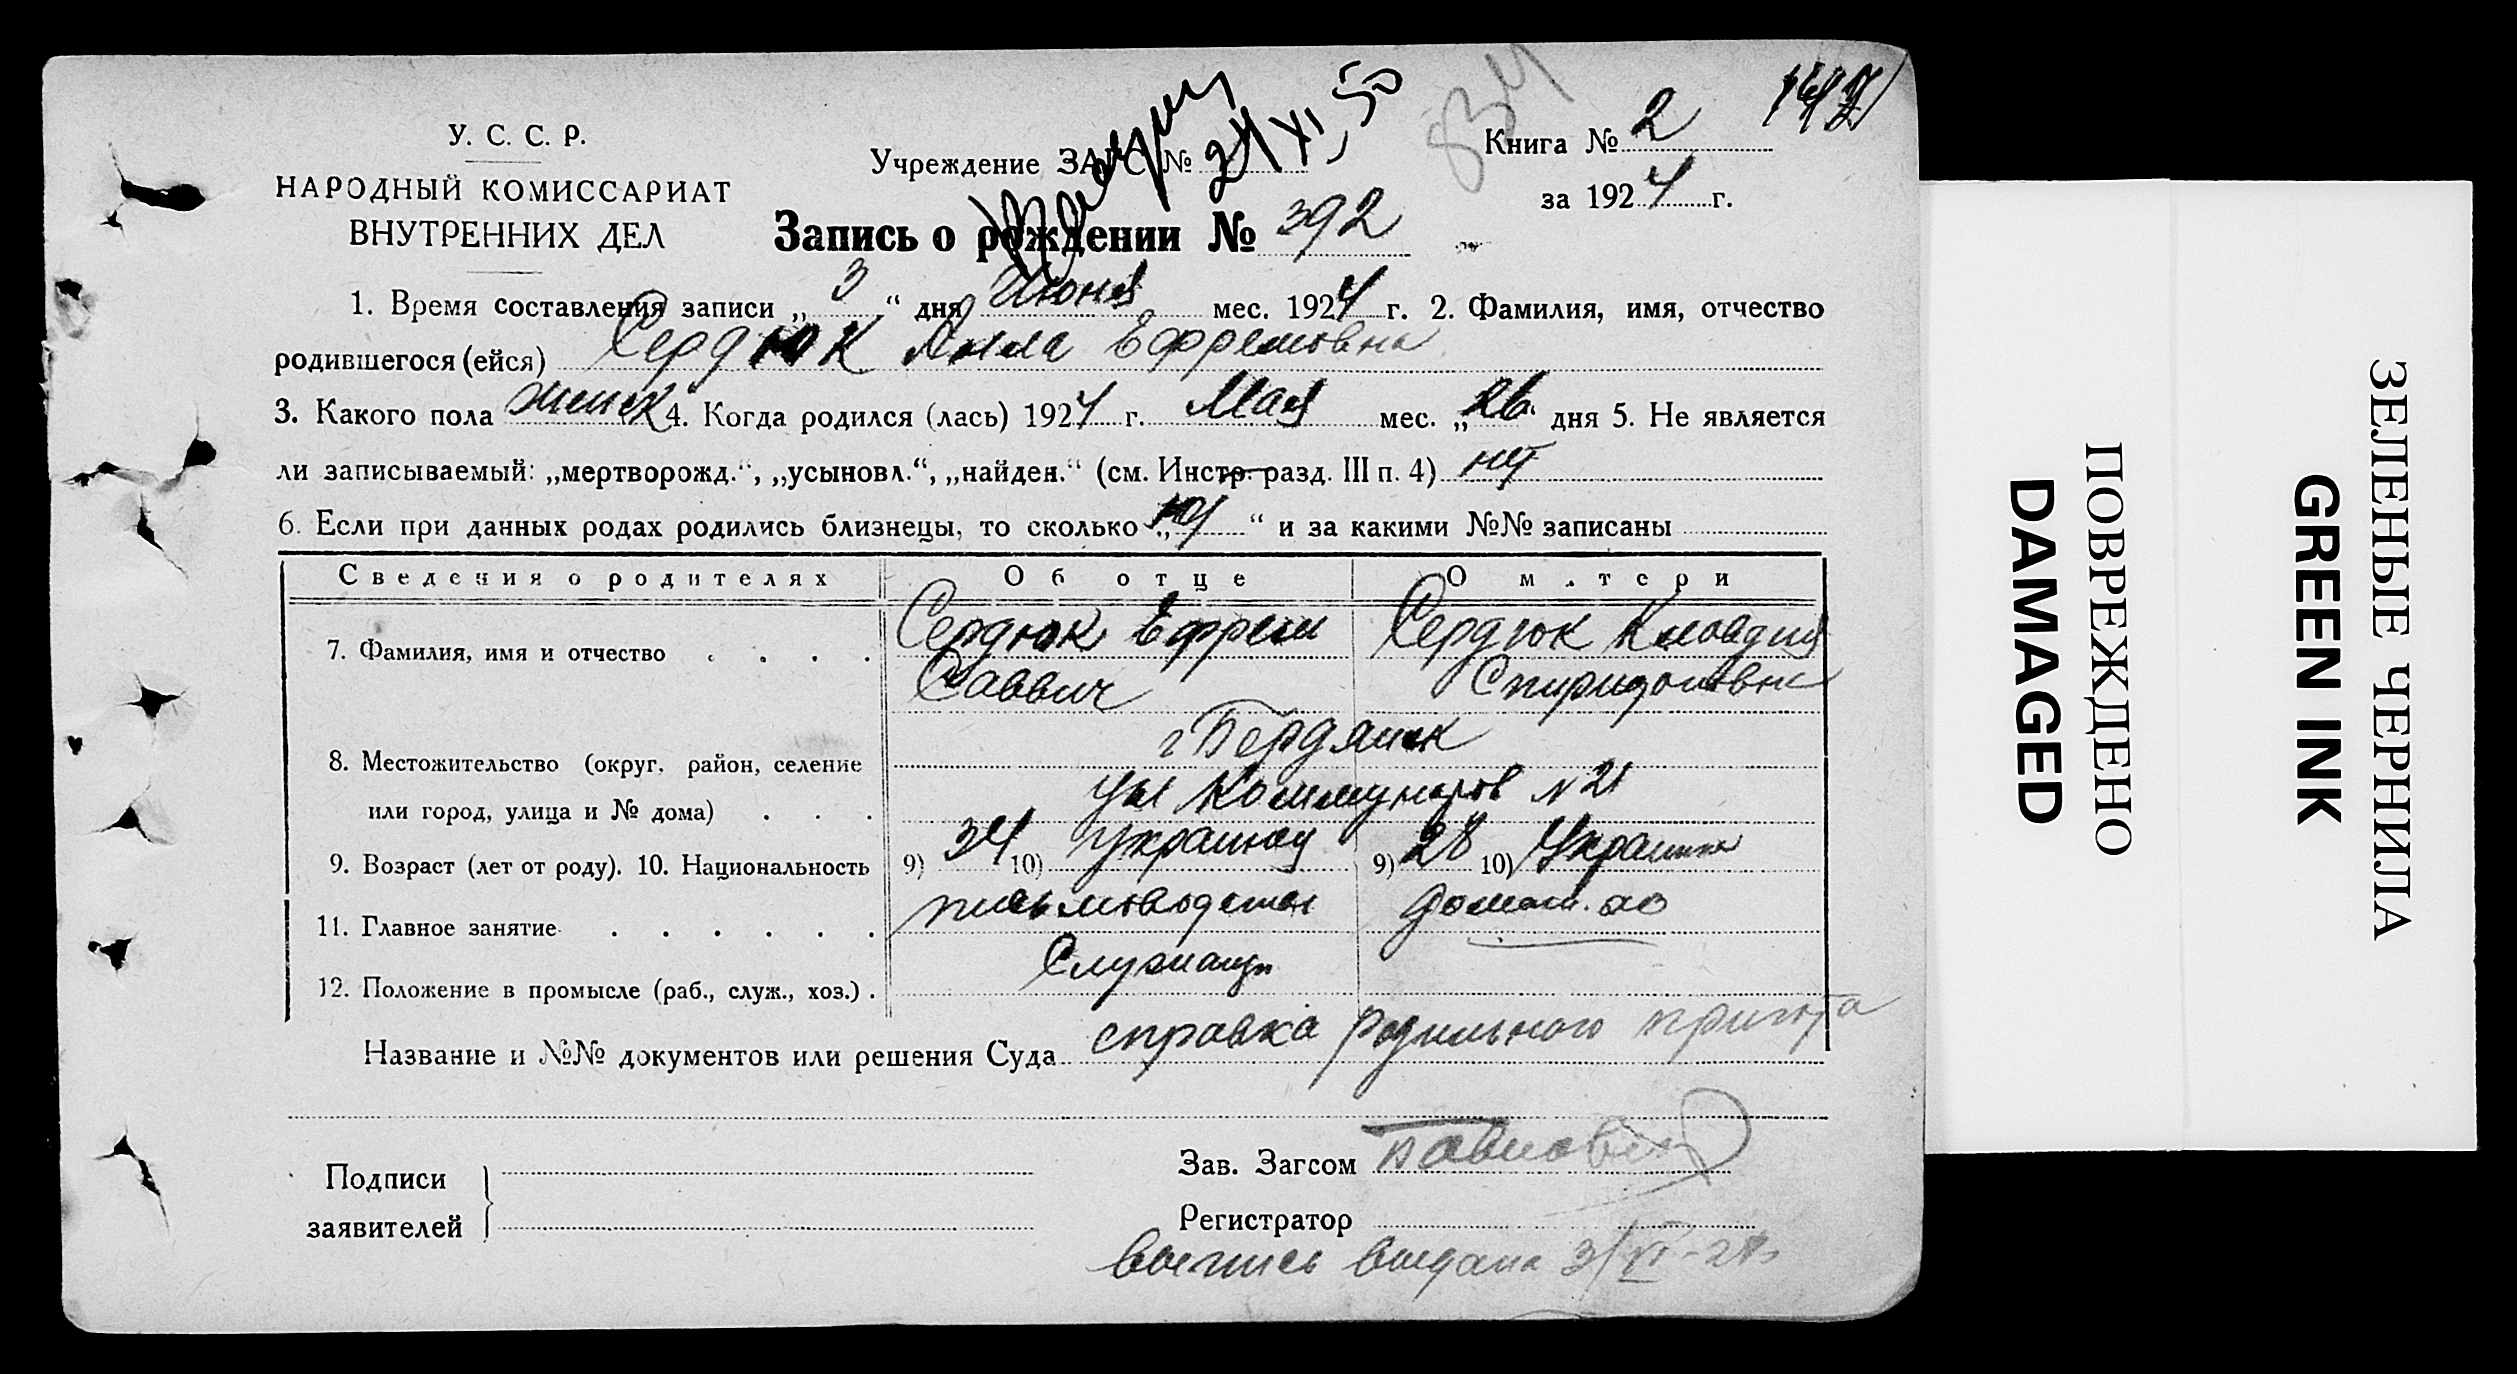 147
834
21/XI, 50
У. С. С. Р.
НАРОДНЫЙ КОМИССАРИАТ
ВНУТРЕННИХ ДЕЛ
Учреждение ЗАГС №
Книга № 2
за 1924 г.
Запись о рождении № 392
1. Время составления записи „ 3 “ дня Июня мес. 1924 г. 2. Фамилия, имя, отчество
родившегося (ейся) Сердюк Алла Ефремовна
3. Какого пола женск 4. Когда родился (лась) 1924 г. Мая мес. „ 26. дня 5. Не является
ли записываемый: „мертворожд.“, „усыновл.“, „найден.“ (см. Инстр. разд. III п. 4) нет
6. Если при данных родах родились близнецы, то сколько „ нет “ и за какими №№ записаны
Сведения о родителях Об отце О м.тери
7. Фамилия, имя и отчество . . . . Сердюк Ефрем Сердюк Клавдия
Саввич Спиридоновна
г Бердянск
8. Местожительство (округ, район, селение
или город, улица и № дома) . . . ул Коммунаров N 21
9. Возраст (лет от роду). 10. Национальность 9) 34 10) Украинец 9) 28 10) Украинка
11. Главное занятие . . . . . . письмоводитель домаш. хо
12. Положение в промысле (раб., служ., хоз.) . Служащ
Название и №№ документов или решения Суда справка родильного приюта
Подписи
заявителей
Зав. Загсом
Регистратор
выпись выдана 3/VI-24г
ПОВРЕЖДЕНО
DAMAGED
ЗЕЛЕНЫЕ ЧЕРНИЛА
GREEN INK